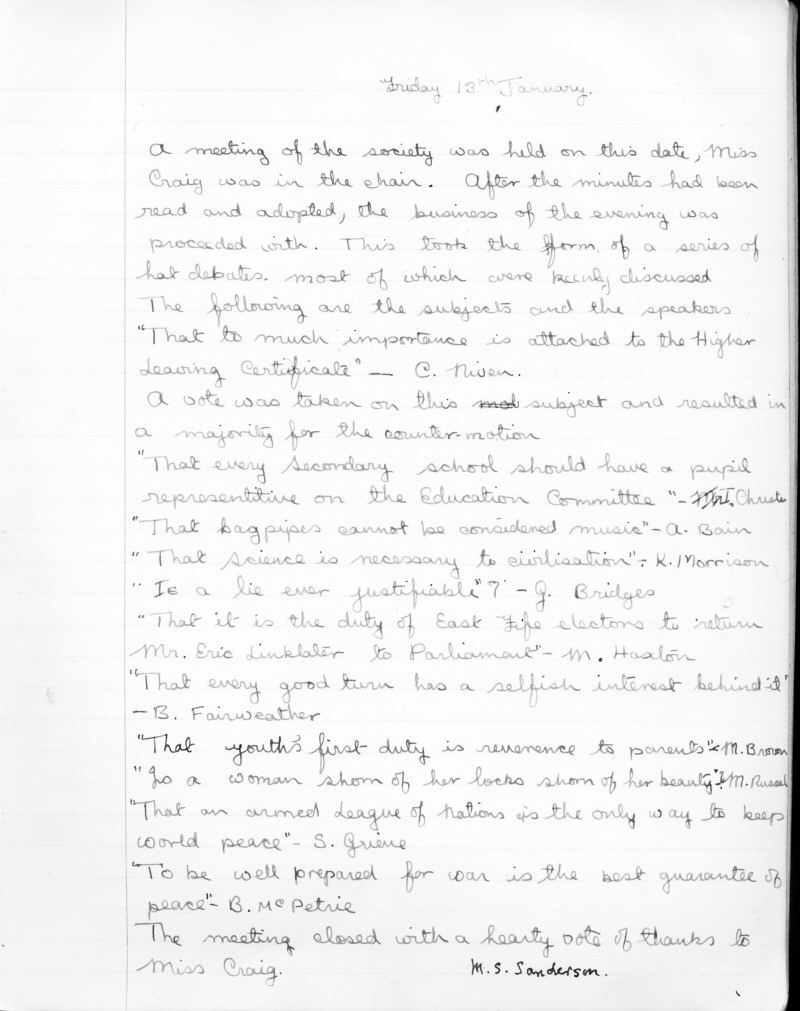 Friday 13th January.
A meeting of the society was held on this date, Miss
Craig was in the chair. After the minutes had been
read and adopted, the business of the evening was
proceeded with. This took the form of a series of
hat debates. most of which were keenly discussed
The following are the subjects and the speakers
"That to much importance is attached to the Higher
Leaving Certificate" — C. Niven.
A vote was taken on this subject and resulted in
a majority for the counter-motion
"That every Secondary school should have a pupil
representitive on the Education Committee" - I. Christie
"That bagpipes cannot be considered music" - A. Bain
"That Science is necessary to civilisation" - K. Morrison
"Is a lie ever justifiable"? - J. Bridges
"That it is the duty of East Fife electors to return
Mr. Eric Linklater to Parliament" - M. Haxton
"That every good turn has a selfish interest behind it"
- B. Fairweather
"That youth's first duty is reverence to parents" - M. Brown
"Is a woman shorn of her locks shorn of her beauty"? M. Russel
"That an armed League of Nations is the only way to keep
world peace" - S. Grieve
"To be well prepared for war is the best guarantee of
peace" - B. McPetrie
The meeting closed with a hearty vote of thanks to
Miss Craig. M. S. Sanderson.